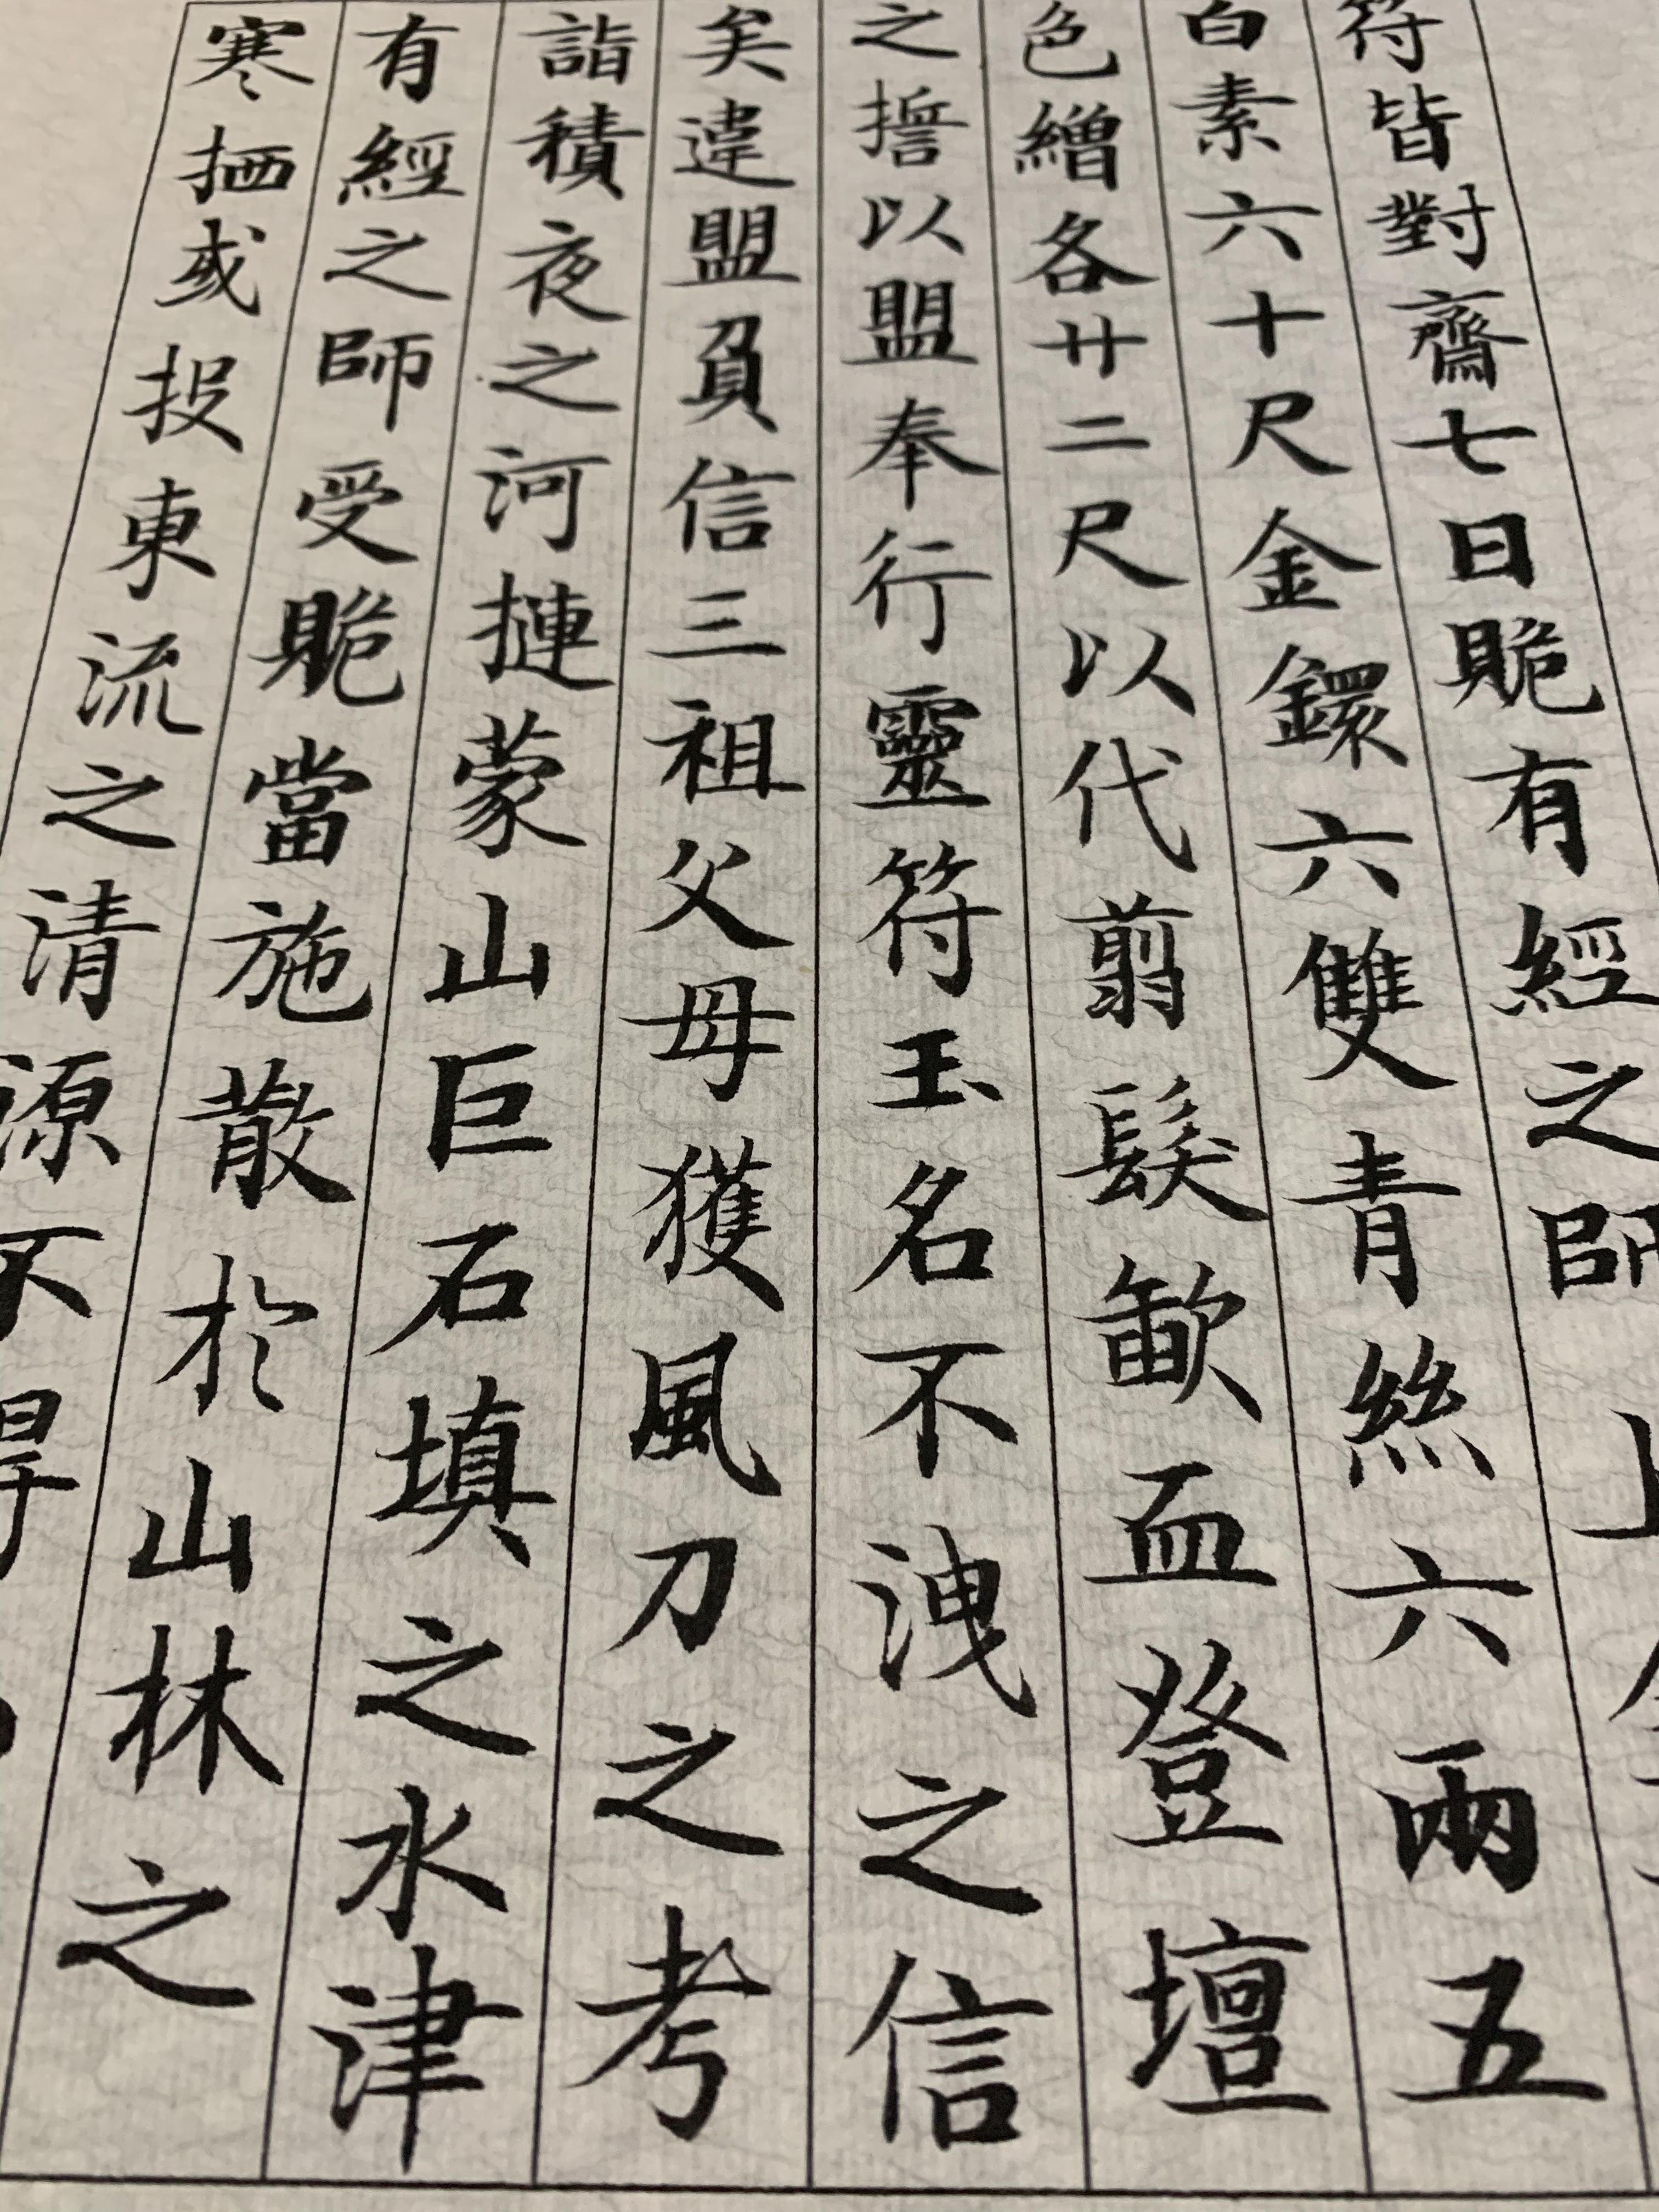 符皆對齋七日貺有經之師上
白素六十尺金鐶六雙青絲六兩五
色繒各廿二尺以代翦髮歃血登壇
之誓以盟奉行靈符玉名不洩之信
矣違盟負信三祖父母獲風刀之考
詣積夜之河摙蒙山巨石填之水津
有經之師受貺當施散於山林之
寒栖或投東流之清源不得